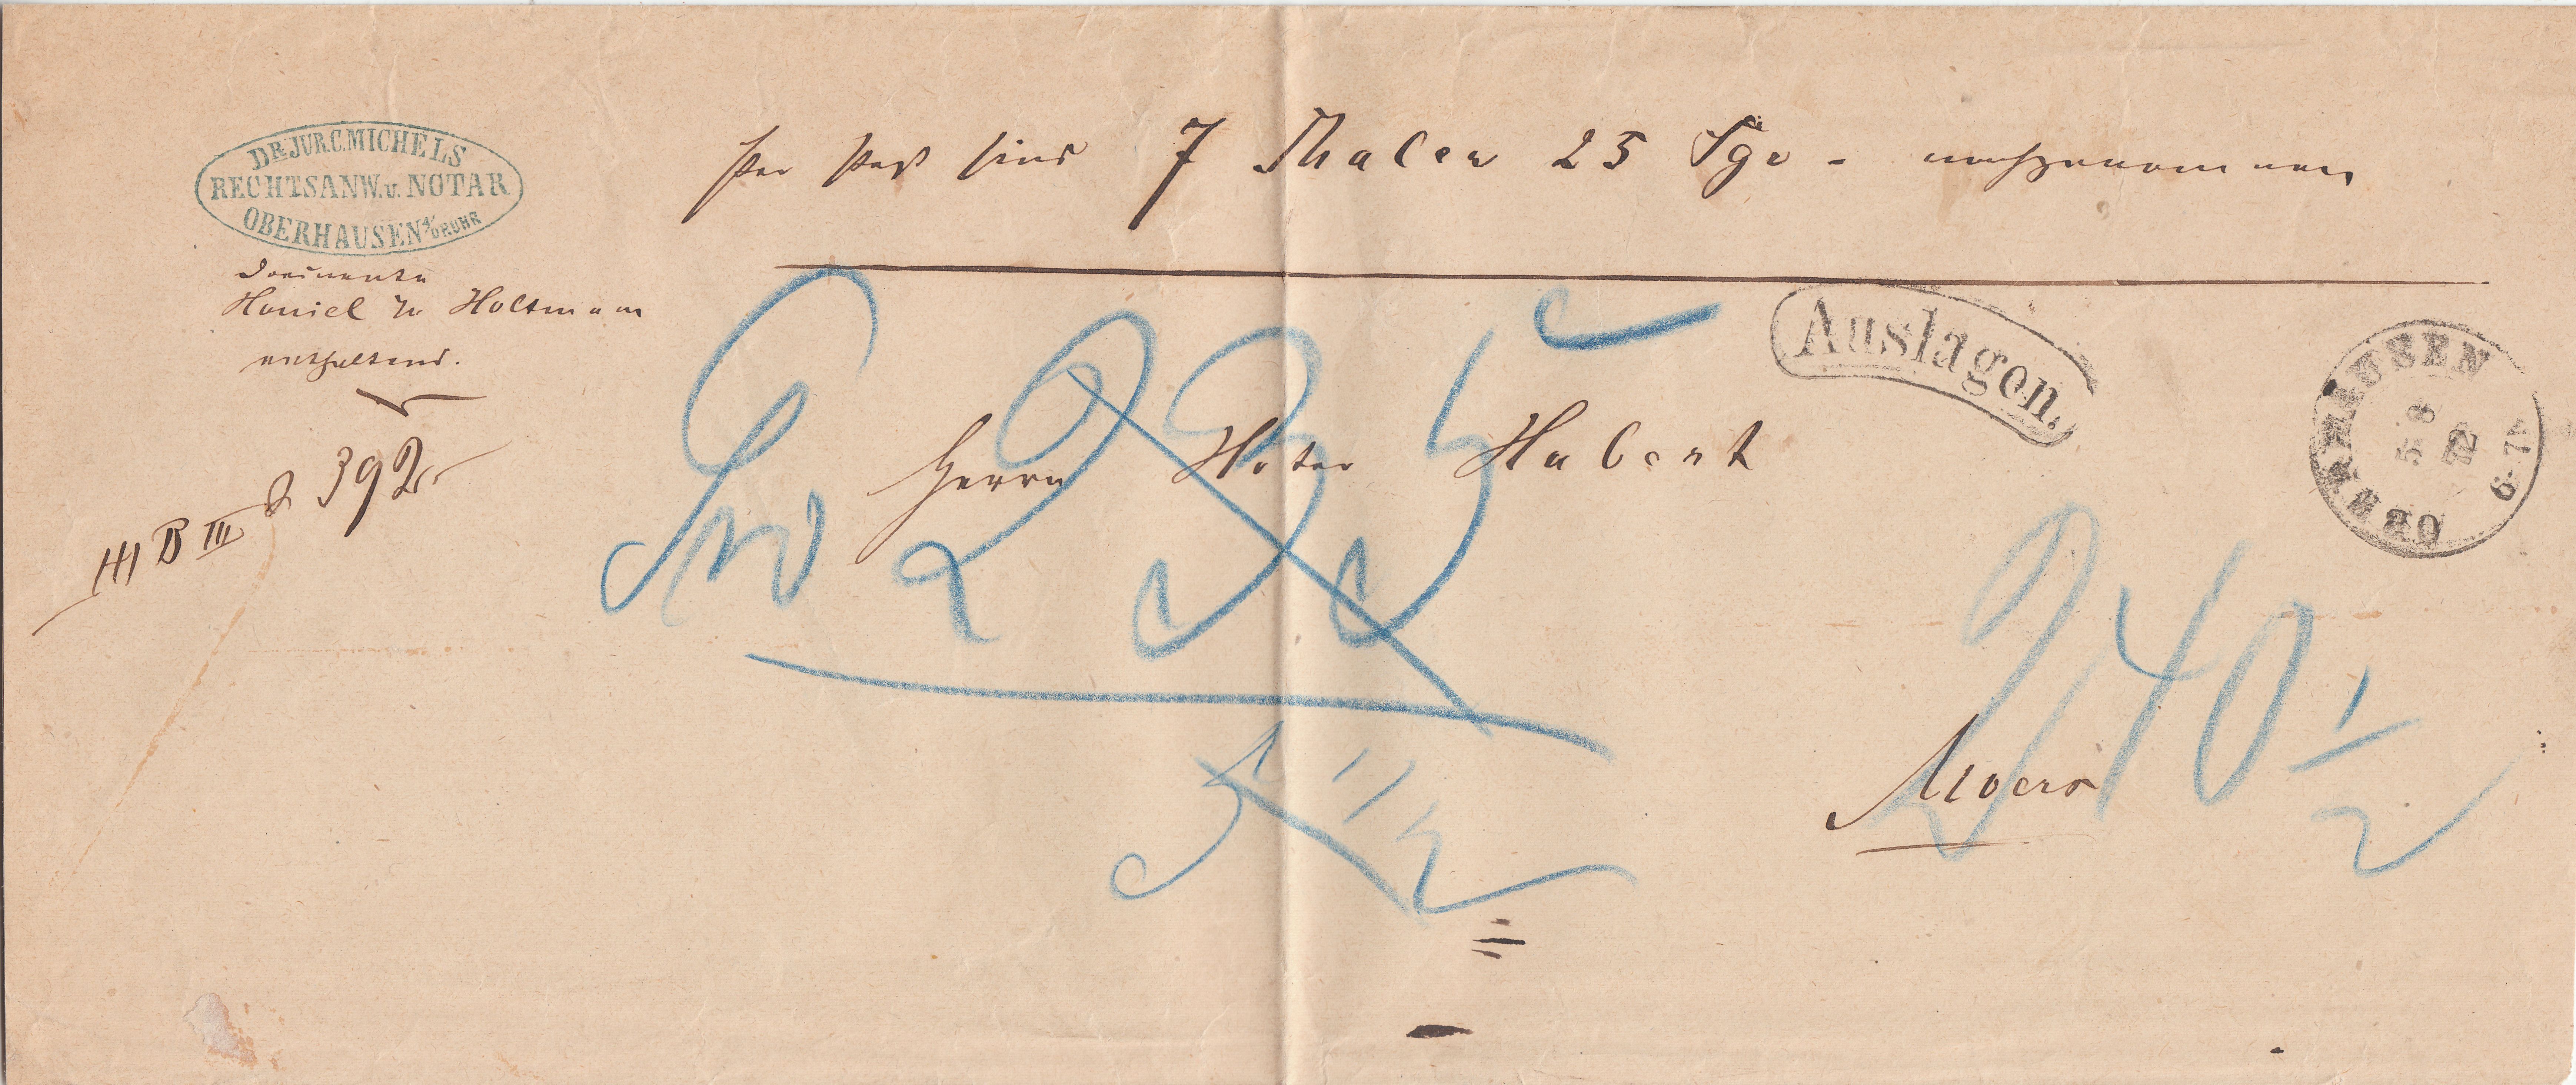 DR JUR. C. MICHELS
RECHTSANW. u. NOTAR
OBERHAUSEN A/D RUHR
Documente
Haniel Holtmann
enthaltend.
III B III 392
per Post sind 7 Thaler 25 Sgr - nachgenommen
Auslagen.
OBERHAUSEN
5 8
72
6-7
Herrn Notar Hubert
235
240 1/2
Moers